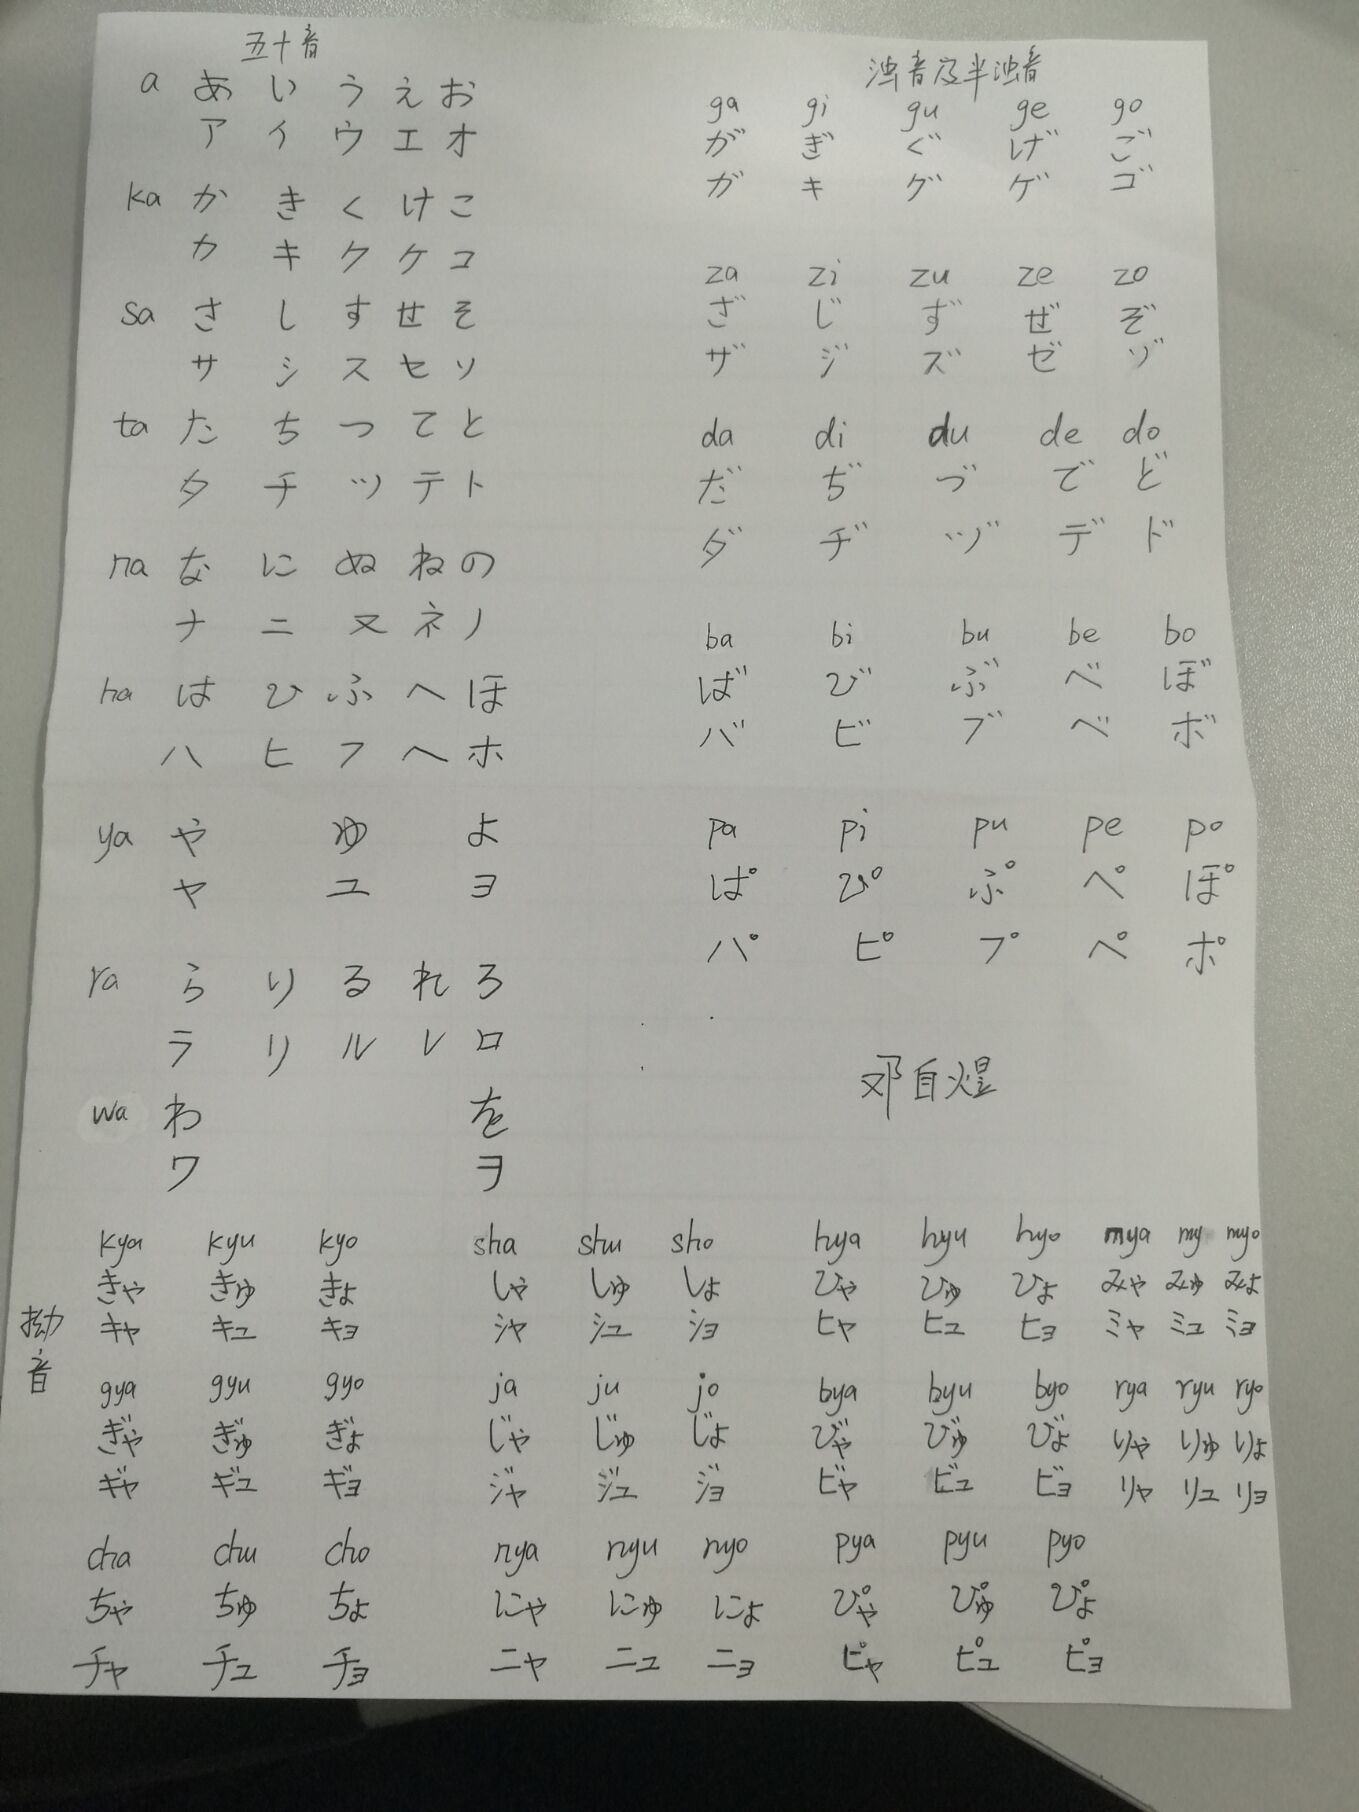 五十音
a あ い う え お
ア イ ウ エ オ
ka か き く け こ
カ キ ク ケ コ
sa さ し す せ そ
サ シ ス セ ソ
ta た ち つ て と
タ チ ツ テ ト
na な に ぬ ね の
ナ ニ ヌ ネ ノ
ha は ひ ふ へ ほ
ハ ヒ フ ヘ ホ
ya や ゆ よ
ヤ ユ ヨ
ra ら り る れ ろ
ラ リ ル レ ロ
wa わ を
ワ ヲ
浊音及半浊音
ga gi gu ge go
が ぎ ぐ げ ご
ガ キ グ ゲ ゴ
za zi zu ze zo
ざ じ ず ぜ ぞ
ザ ジ ズ ゼ ゾ
da di du de do
だ ぢ づ で ど
ダ ヂ ヅ デ ド
ba bi bu be bo
ば び ぶ べ ぼ
バ ビ ブ ベ ボ
pa pi pu pe po
ぱ ぴ ぷ ぺ ぽ
パ ピ プ ペ ポ
邓自煜
拗音
kya kyu kyo sha shu sho hya hyu hyo mya my myo
きゃ きゅ きょ しゃ しゅ しょ ひゃ ひゅ ひょ みゃ みゅ みょ
キャ キュ キョ シャ シュ ショ ヒャ ヒュ ヒョ ミャ ミュ ミョ
gya gyu gyo ja ju jo bya byu byo rya ryu ryo
ぎゃ ぎゅ ぎょ じゃ じゅ じょ びゃ びゅ びょ りゃ りゅ りょ
ギャ ギュ ギョ ジャ ジュ ジョ ビャ ビュ ビョ リャ リュ リョ
cha chu cho nya nyu nyo pya pyu pyo
ちゃ ちゅ ちょ にゃ にゅ にょ ぴゃ ぴゅ ぴょ
チャ チュ チョ ニャ ニュ ニョ ピャ ピュ ピョ